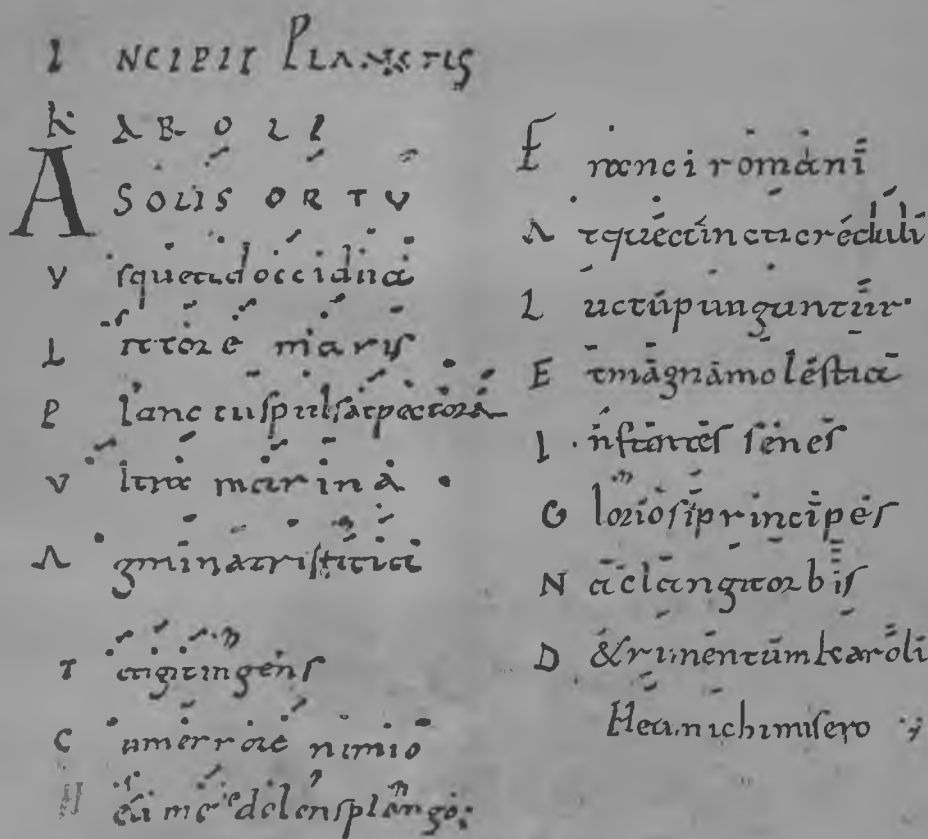 INCIPIT PLANCTUS
KAROLI
A SOLIS ORTU
Usquead occidua
Littora maris
Planctus pulsat pectora
Ultra marina
Agmina tristitia
Tetigit ingens
Cum errore nimio
Heu me dolens plango;
Franci romani
Atque cuncti creduli
Luctu punguntur
Et magna molestia
Infantes senes
Gloriosi principes
Nam clangit orbis
Detrimentum karoli
Heu mihi misero